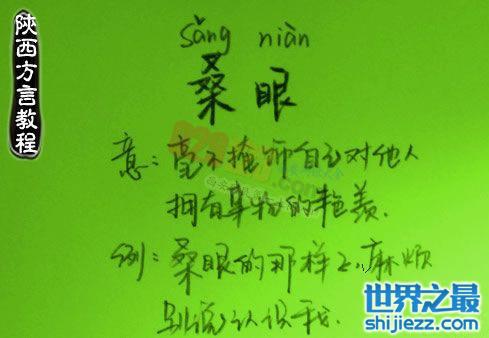 陕西方言教程
sǎng niàn
桑眼
意:毫不掩饰自己对他人
拥有事物的艳羡.
例:桑眼的那样子,麻烦
别说认识我.
世界之最
shijiezz.com